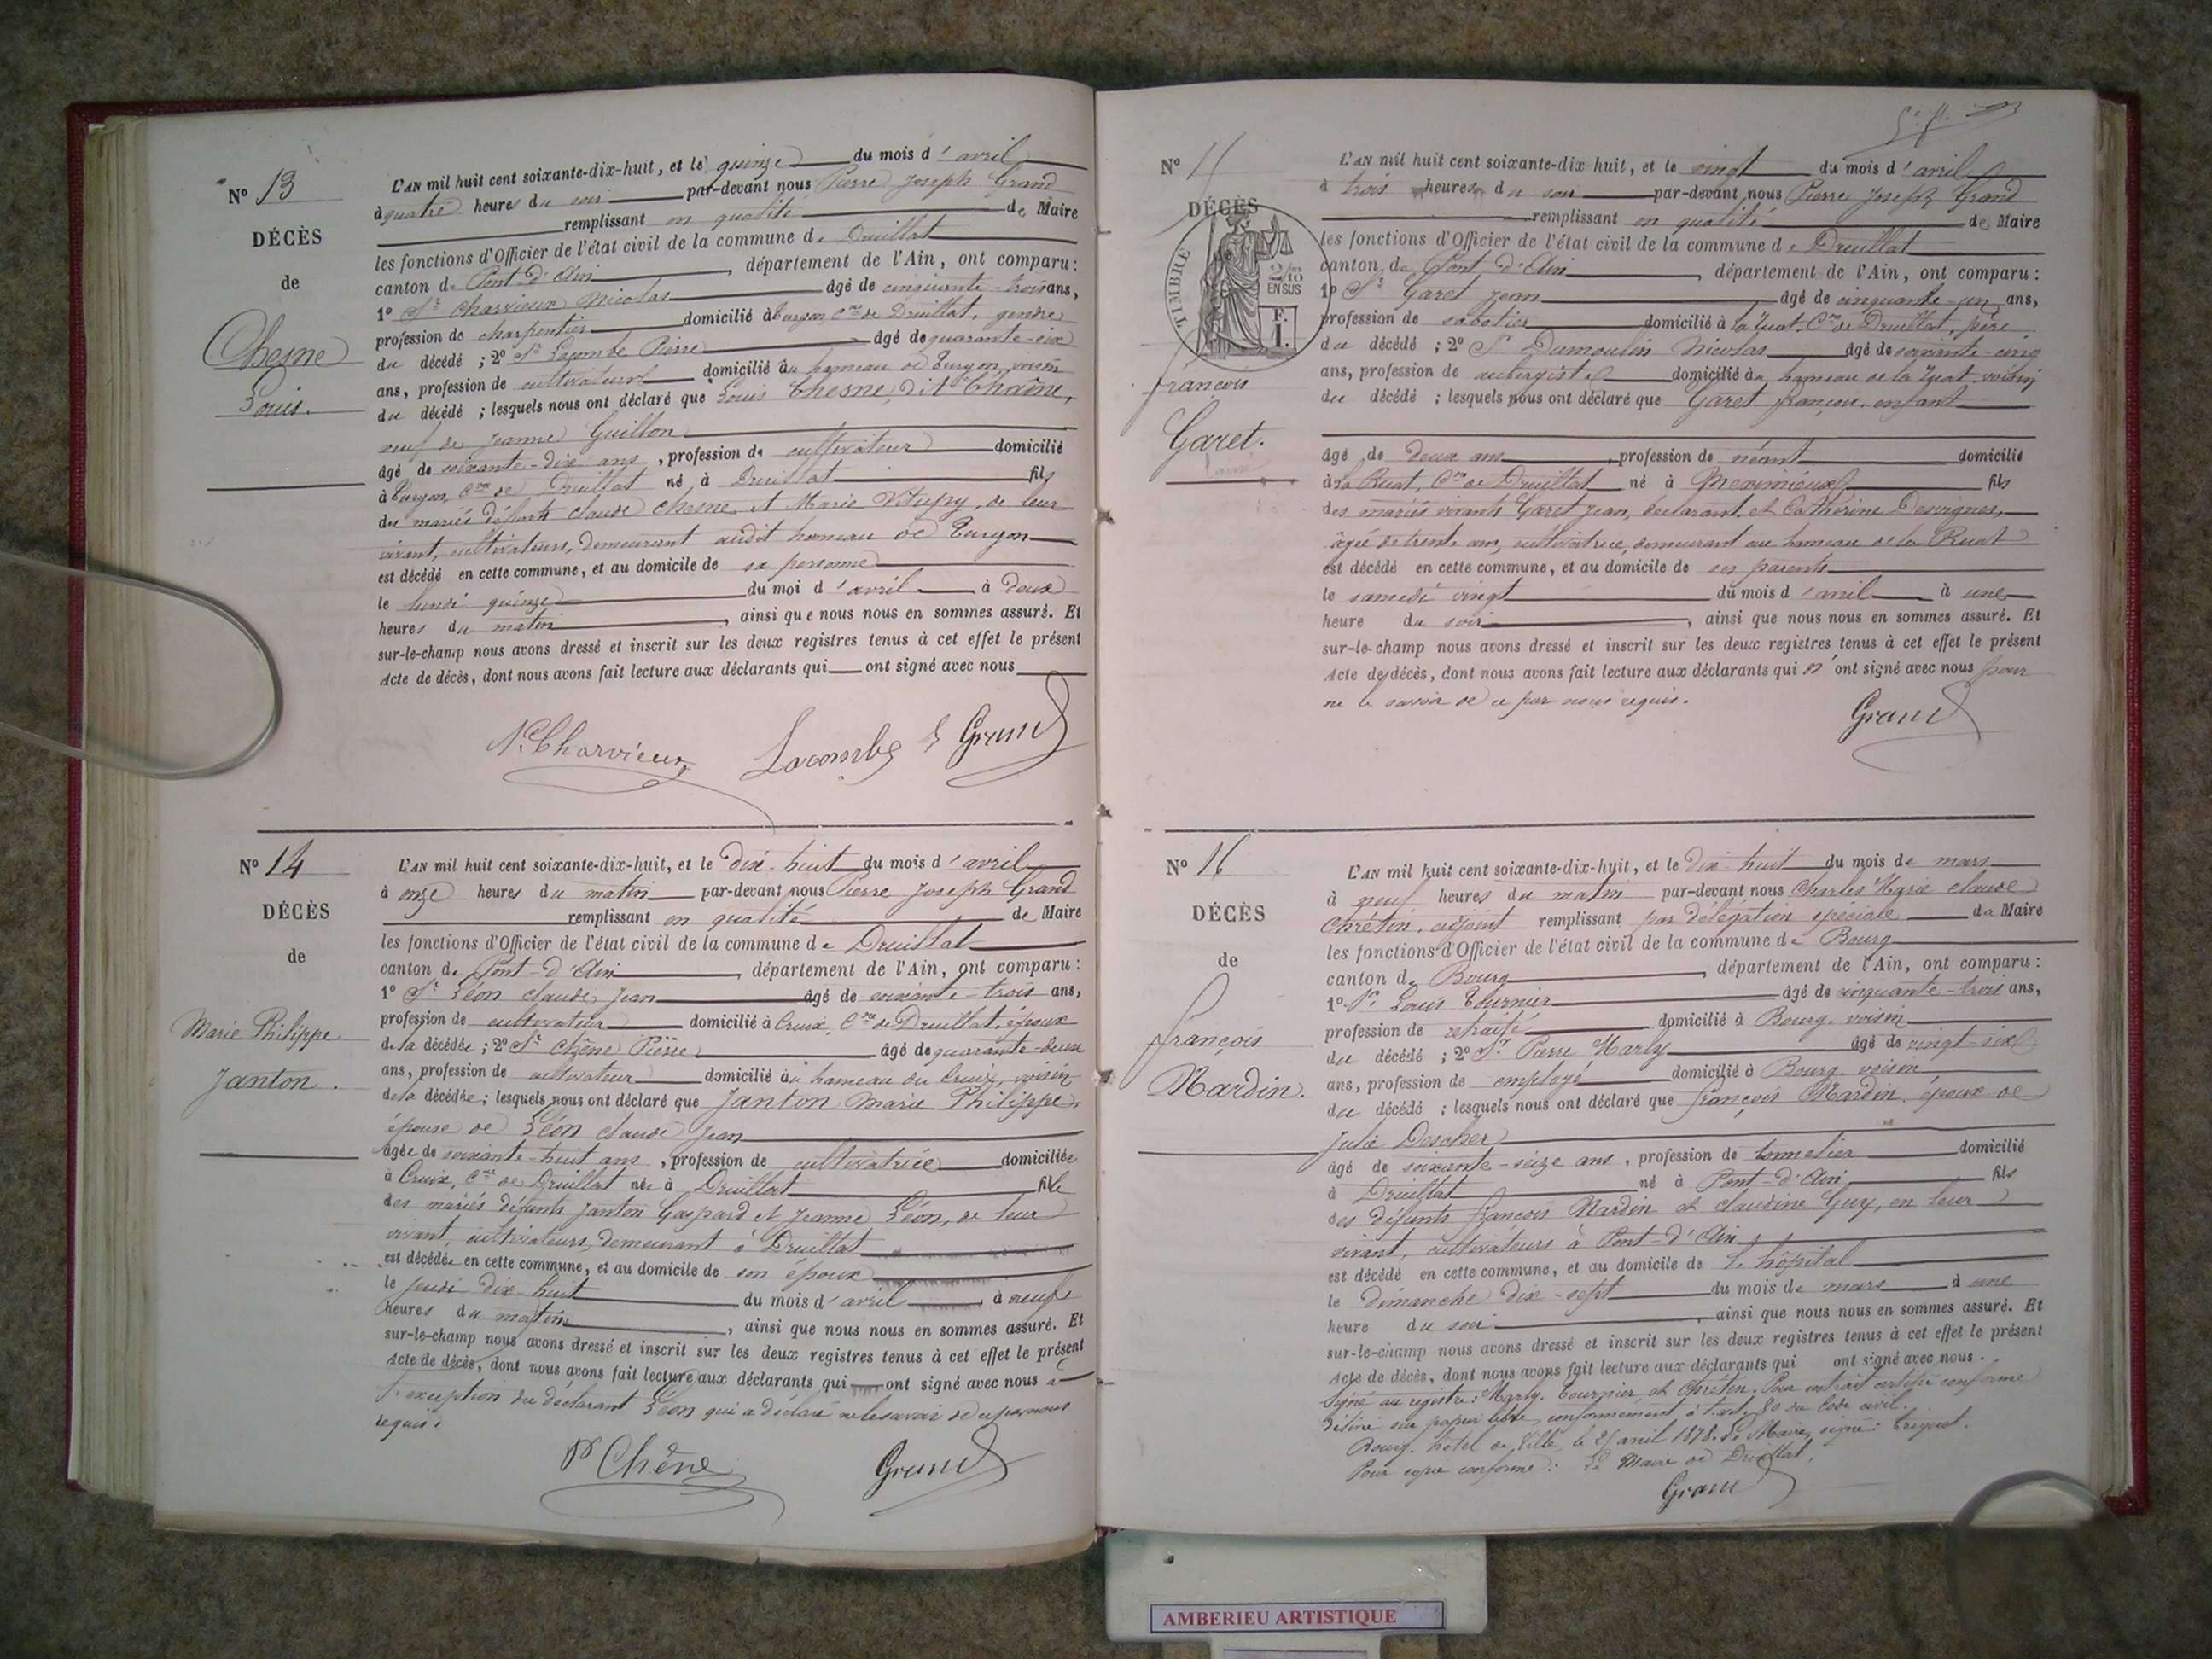 N° 13
DÉCÈS
de
Chesne
Louis.
L'AN mil huit cent soixante-dix-huit, et le quinze du mois d'avril
à quatre heures du soir par-devant nous Pierre Joseph Grand
remplissant en qualité de Maire
les fonctions d'Officier de l'état civil de la commune de Druillat
canton de Pont-d'Ain, département de l'Ain, ont comparu :
1° Sr Charvieux Nicolas âgé de cinquante-trois ans,
profession de charpentier domicilié à Turgon Cne de Druillat, gendre
du décédé ; 2° Sr Lacombe Pierre âgé de quarante-six
ans, profession de cultivateur domicilié au hameau de Turgon, voisin
du décédé ; lesquels nous ont déclaré que Louis Chesne, dit Chaîne,
veuf de Jeanne Guillon
âgé de soixante-dix ans, profession de cultivateur domicilié
à Turgon, Cne de Druillat né à Druillat fils
des mariés défunts Claude Chesne et Marie, de leur
vivant, cultivateurs, demeurant audit hameau de Turgon
est décédé en cette commune, et au domicile de sa personne
le lundi quinze du moi d'avril à deux
heures du matin, ainsi que nous nous en sommes assuré. Et
sur-le-champ nous avons dressé et inscrit sur les deux registres tenus à cet effet le présent
Acte de décès, dont nous avons fait lecture aux déclarants qui ont signé avec nous
N. Charvieux Lacombe Grand
N° 14
DÉCÈS
de
Marie Philippe
Janton.
L'AN mil huit cent soixante-dix-huit, et le dix-huit du mois d'avril
à onze heures du matin par-devant nous Pierre Joseph Grand
remplissant en qualité de Maire
les fonctions d'Officier de l'état civil de la commune de Druillat
canton de Pont-d'Ain, département de l'Ain, ont comparu :
1° Sr Léon Claude Jean âgé de soixante-trois ans,
profession de cultivateur domicilié à Cruix, Cne de Druillat, époux
de la décédée ; 2° Sr Chêne Pierre âgé de quarante-deux
ans, profession de cultivateur domicilié au hameau du Cruix, voisin
de la décédée ; lesquels nous ont déclaré que Janton Marie Philippe,
épouse de Léon Claude Jean
âgée de soixante-huit ans, profession de cultivatrice domiciliée
à Cruix, Cne de Druillat née à Druillat fille
des mariés défunts Janton Gaspard et Jeanne Léon, de leur
vivant, cultivateurs, demeurant à Druillat
est décédée en cette commune, et au domicile de son époux
le jeudi dix-huit du mois d'avril à neuf
heures du matin, ainsi que nous nous en sommes assuré. Et
sur-le-champ nous avons dressé et inscrit sur les deux registres tenus à cet effet le présent
Acte de décès, dont nous avons fait lecture aux déclarants qui ont signé avec nous à
l'exception du déclarant Léon qui a déclaré ne le savoir de ce par nous
requis.
P Chêne Grand
N° 15
DÉCÈS
TIMBRE
2/10 EN SUS
F. 1.
François
Garet.
L'AN mil huit cent soixante-dix-huit, et le vingt du mois d'avril
à trois heures du soir par-devant nous Pierre Joseph Grand
remplissant en qualité de Maire
les fonctions d'Officier de l'état civil de la commune de Druillat
canton de Pont-d'Ain, département de l'Ain, ont comparu :
1° Sr Garet Jean âgé de cinquante-un ans,
profession de sabotier domicilié à la Ruat, Cne de Druillat, père
du décédé ; 2° Sr Dumoulin Nicolas âgé de soixante-cinq
ans, profession de aubergiste domicilié au hameau de la Ruat, voisin
du décédé ; lesquels nous ont déclaré que Garet François, enfant
âgé de deux ans, profession de néant domicilié
à la Ruat, Cne de Druillat né à Meximieux fils
des mariés vivants Garet Jean, déclarant, et Catherine Desvignes,
âgée de trente ans, cultivatrice, demeurant au hameau de la Ruat
est décédé en cette commune, et au domicile de ses parents
le samedi vingt du mois d'avril à une
heure du soir, ainsi que nous nous en sommes assuré. Et
sur-le-champ nous avons dressé et inscrit sur les deux registres tenus à cet effet le présent
Acte de décès, dont nous avons fait lecture aux déclarants qui n'ont signé avec nous pour
ne le savoir de ce par nous requis.
Grand
N° 16
DÉCÈS
de
François
Mardin.
L'AN mil huit cent soixante-dix-huit, et le dix-huit du mois de mars
à neuf heures du matin par-devant nous Charles Marie Claude
Chrétin, adjoint remplissant par délégation spéciale du Maire
les fonctions d'Officier de l'état civil de la commune de Bourg
canton de Bourg, département de l'Ain, ont comparu :
1° Sr Louis Tournier âgé de cinquante-trois ans,
profession de retraité domicilié à Bourg, voisin
du décédé ; 2° Sr Pierre Marly âgé de vingt-six
ans, profession de employé domicilié à Bourg, voisin
du décédé ; lesquels nous ont déclaré que François Mardin, époux de
Julie Descher
âgé de soixante-seize ans, profession de tonnelier domicilié
à Druillat né à Pont-d'Ain fils
des défunts François Mardin et Claudine Guy, en leur
vivant, cultivateurs à Pont-d'Ain
est décédé en cette commune, et au domicile de l'hôpital
le dimanche dix-sept du mois de mars à une
heure du soir, ainsi que nous nous en sommes assuré. Et
sur-le-champ nous avons dressé et inscrit sur les deux registres tenus à cet effet le présent
Acte de décès, dont nous avons fait lecture aux déclarants qui ont signé avec nous.
Signé au registre : Marly, Tournier et Chrétin. Pour extrait certifié conforme
Délivré sur papier libre, conformément à l'art. 80 du Code civil.
Bourg, hôtel de Ville, le 25 avril 1878. Le Maire, signé :
Pour copie conforme : Le Maire de Druillat,
Grand
AMBERIEU ARTISTIQUE